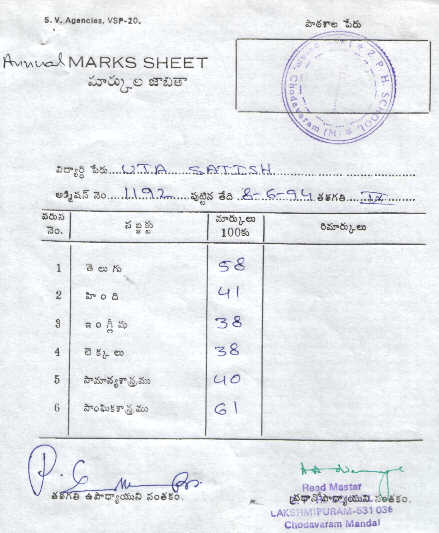 S. V. Agencies, VSP-20.
పాఠశాల పేరు
Annual MARKS SHEET
మార్కుల జాబితా
Z P H SCHOOL
Chodavaram (M)
విద్యార్థి పేరు UTA SATISH
అడ్మిషన్ నెం. 1192 పుట్టిన తేది 8-6-94 తరగతి IX
వరుస నెం. సబ్జక్టు మార్కులు 100కు రిమార్కులు
1 తెలుగు 58
2 హింది 41
3 ఇంగ్లీషు 38
4 లెక్కలు 38
5 సామాన్యశాస్త్రము 40
6 సాంఘికశాస్త్రము 61
తరగతి ఉపాధ్యాయుని సంతకం.
Head Master
ప్రధానోపాధ్యాయుని సంతకం.
LAKSHMIPURAM-531 036
Chodavaram Mandal